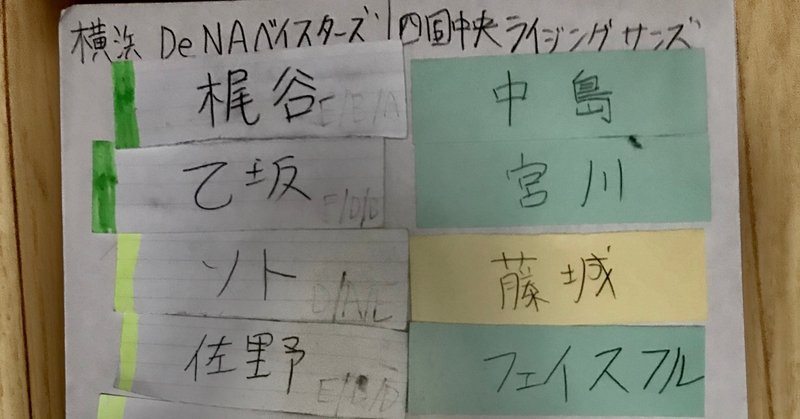 横浜 DeNAベイスターズ 四国中央ライジングサンズ
梶谷 E/B/A 中島
乙坂 E/D/D 宮川
ソト D/A/E 藤城
佐野 E/B/D フェイスフル